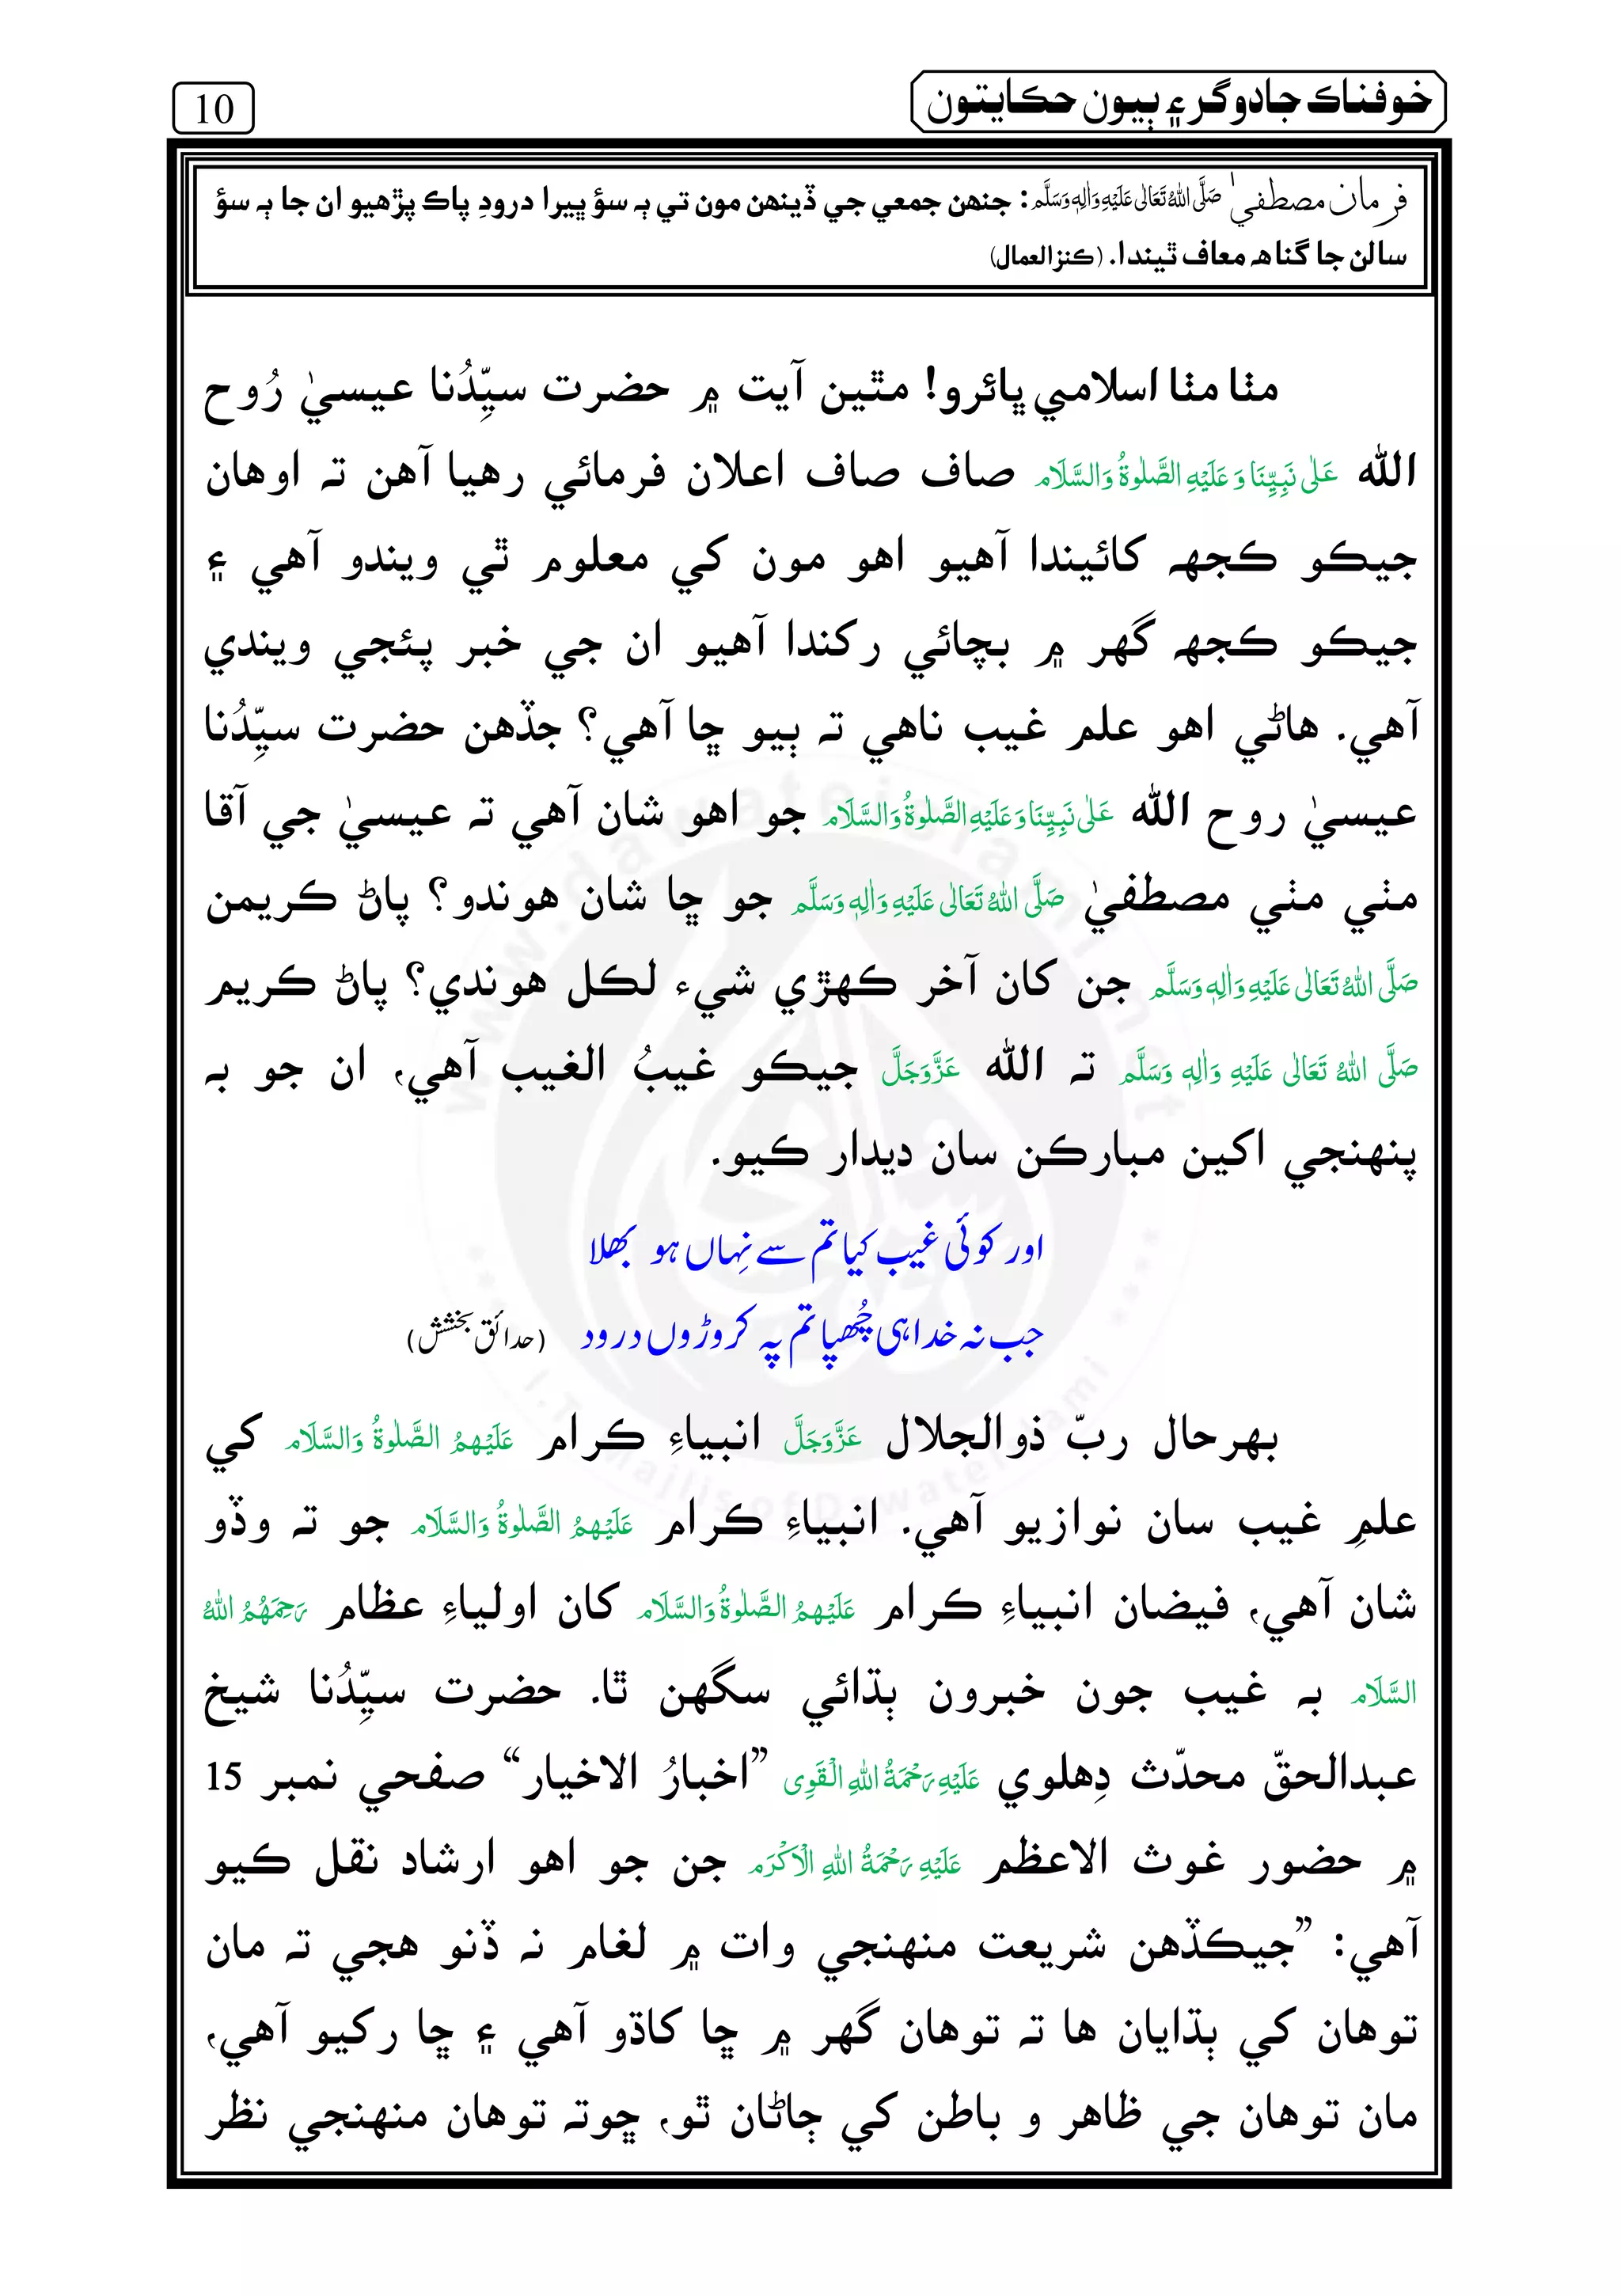 خوفناڪ جادوگر ۽ ٻيون حڪايتون
10
فرمان مصطفيٰ صَلَّى اللهُ تَعَالٰى عَلَيْهِ وَاٰلِهٖ وَسَلَّم: جنهن جمعي جي ڏينهن مون تي ٻہ سؤ ڀيرا درودِ پاڪ پڙهيو ان جا ٻہ سؤ
سالن جا گناهہ معاف ٿيندا. (ڪنزالعمال)
مٺا مٺا اسلامي ڀائرو! مٿين آيت ۾ حضرت سيِّدُنا عيسيٰ رُوح
الله عَلٰى نَبِيِّنَا وَ عَلَيْهِ الصَّلٰوةُ وَالسَّلَام صاف صاف اعلان فرمائي رهيا آهن تہ اوهان
جيڪو ڪجهہ کائيندا آهيو اهو مون کي معلوم ٿي ويندو آهي ۽
جيڪو ڪجهہ گهر ۾ بچائي رکندا آهيو ان جي خبر پئجي ويندي
آهي. هاڻي اهو علم غيب ناهي تہ ٻيو ڇا آهي؟ جڏهن حضرت سيِّدُنا
عيسيٰ روح الله عَلٰى نَبِيِّنَا وَعَلَيْهِ الصَّلٰوةُ وَالسَّلَام جو اهو شان آهي تہ عيسيٰ جي آقا
مٺي مٺي مصطفيٰ صَلَّى اللهُ تَعَالٰى عَلَيْهِ وَاٰلِهٖ وَسَلَّم جو ڇا شان هوندو؟ پاڻ ڪريمن
صَلَّى اللهُ تَعَالٰى عَلَيْهِ وَاٰلِهٖ وَسَلَّم جن کان آخر ڪهڙي شيء لڪل هوندي؟ پاڻ ڪريم
صَلَّى اللهُ تَعَالٰى عَلَيْهِ وَاٰلِهٖ وَسَلَّم تہ الله عَزَّوَجَلَّ جيڪو غيبُ الغيب آهي، ان جو بہ
پنهنجي اکين مبارڪن سان ديدار ڪيو.
اور کوئی غیب کیا تم سے نِہاں ہو بھلا
جب نہ خدا ہی چُھپا تم پہ کروڑوں درود (حدائق بخشش)
بهرحال ربّ ذوالجلال عَزَّوَجَلَّ انبياءِ ڪرام عَلَيْهِمُ الصَّلٰوةُ وَالسَّلَام کي
علمِ غيب سان نوازيو آهي. انبياءِ ڪرام عَلَيْهِمُ الصَّلٰوةُ وَالسَّلَام جو تہ وڏو
شان آهي، فيضان انبياءِ ڪرام عَلَيْهِمُ الصَّلٰوةُ وَالسَّلَام کان اولياءِ عظام رَحِمَهُمُ اللهُ
السَّلَام بہ غيب جون خبرون ٻڌائي سگهن ٿا. حضرت سيِّدُنا شيخ
عبدالحقّ محدّث دِهلوي عَلَيْهِ رَحْمَةُ اللهِ الْقَوِى ”اخبارُ الاخيار“ صفحي نمبر 15
۾ حضور غوث الاعظم عَلَيْهِ رَحْمَةُ اللهِ الْاَكْرَم جن جو اهو ارشاد نقل ڪيو
آهي: ”جيڪڏهن شريعت منهنجي وات ۾ لغام نہ ڏنو هجي تہ مان
توهان کي ٻڌايان ها تہ توهان گهر ۾ ڇا کاڌو آهي ۽ ڇا رکيو آهي،
مان توهان جي ظاهر و باطن کي ڄاڻان ٿو، ڇوتہ توهان منهنجي نظر